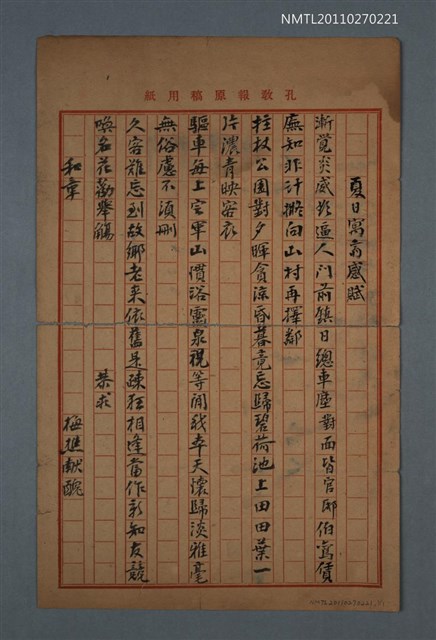 NMTL20110270221
孔教報原稿用紙
夏日寓齋感賦
漸覺炎威欲逼人門前鎮日總車塵對面皆官邸伯鸞賃
廡知非計擬向山村再擇鄰
拄杖公園對夕暉貪涼昏暮竟忘歸碧荷池上田田葉一
片濃青映客衣
驅車每上官軍山慣浴靈泉視等閒我本天懷歸淡雅毫
無俗慮不須刪
久客難忘到故鄉老來依舊是疎狂相逢當作新知友競
喚名花勸舉觴
和章 恭求
梅樵獻醜
NMTL20110270221